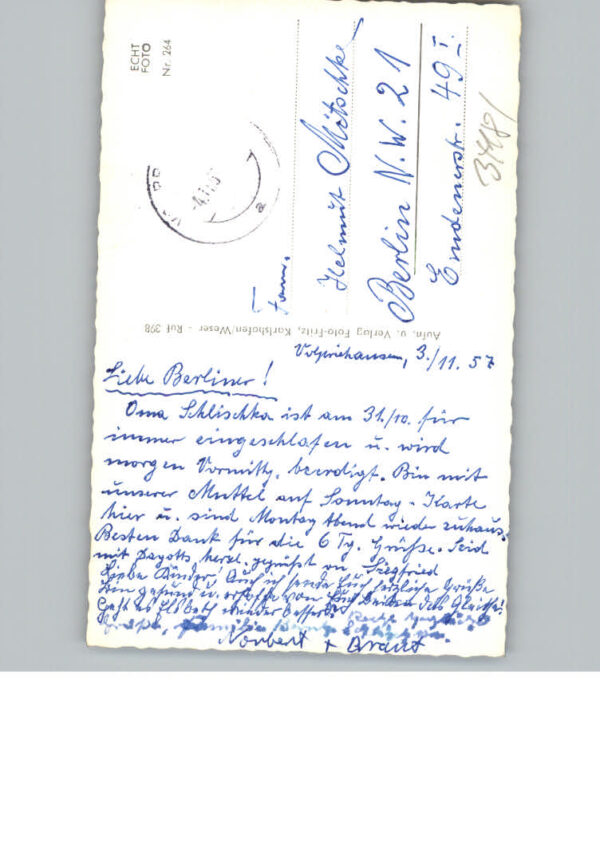 ECHT
FOTO
Nr. 264
Fam.
Helmut Mitschke
Berlin N.W. 21
Emdenerstr. 49 I.
3418/
Aufn. u. Verlag Foto-Fritz, Karlshafen/Weser - Ruf 398
Volpriehausen, 3./11. 57
Liebe Berliner!
Oma Schlischka ist am 31./10. für
immer eingeschlafen u. wird
morgen Vormittg. beerdigt. Bin mit
unserer Muttel auf Sonntag-Karte
hier u. sind Montag Abend wieder zuhaus.
Besten Dank für die 6 Tg. Grüße. Seid
mit Dagotts herzl. gegrüßt von Siegfried
Liebe Kinder! Auch ich sende Euch herzliche Grüße
bin gesund u. erhoffe von Euch beiden das Gleiche.
Geht es Elsbeth wieder besser?
Grüße, Familie
Norbert + Braut